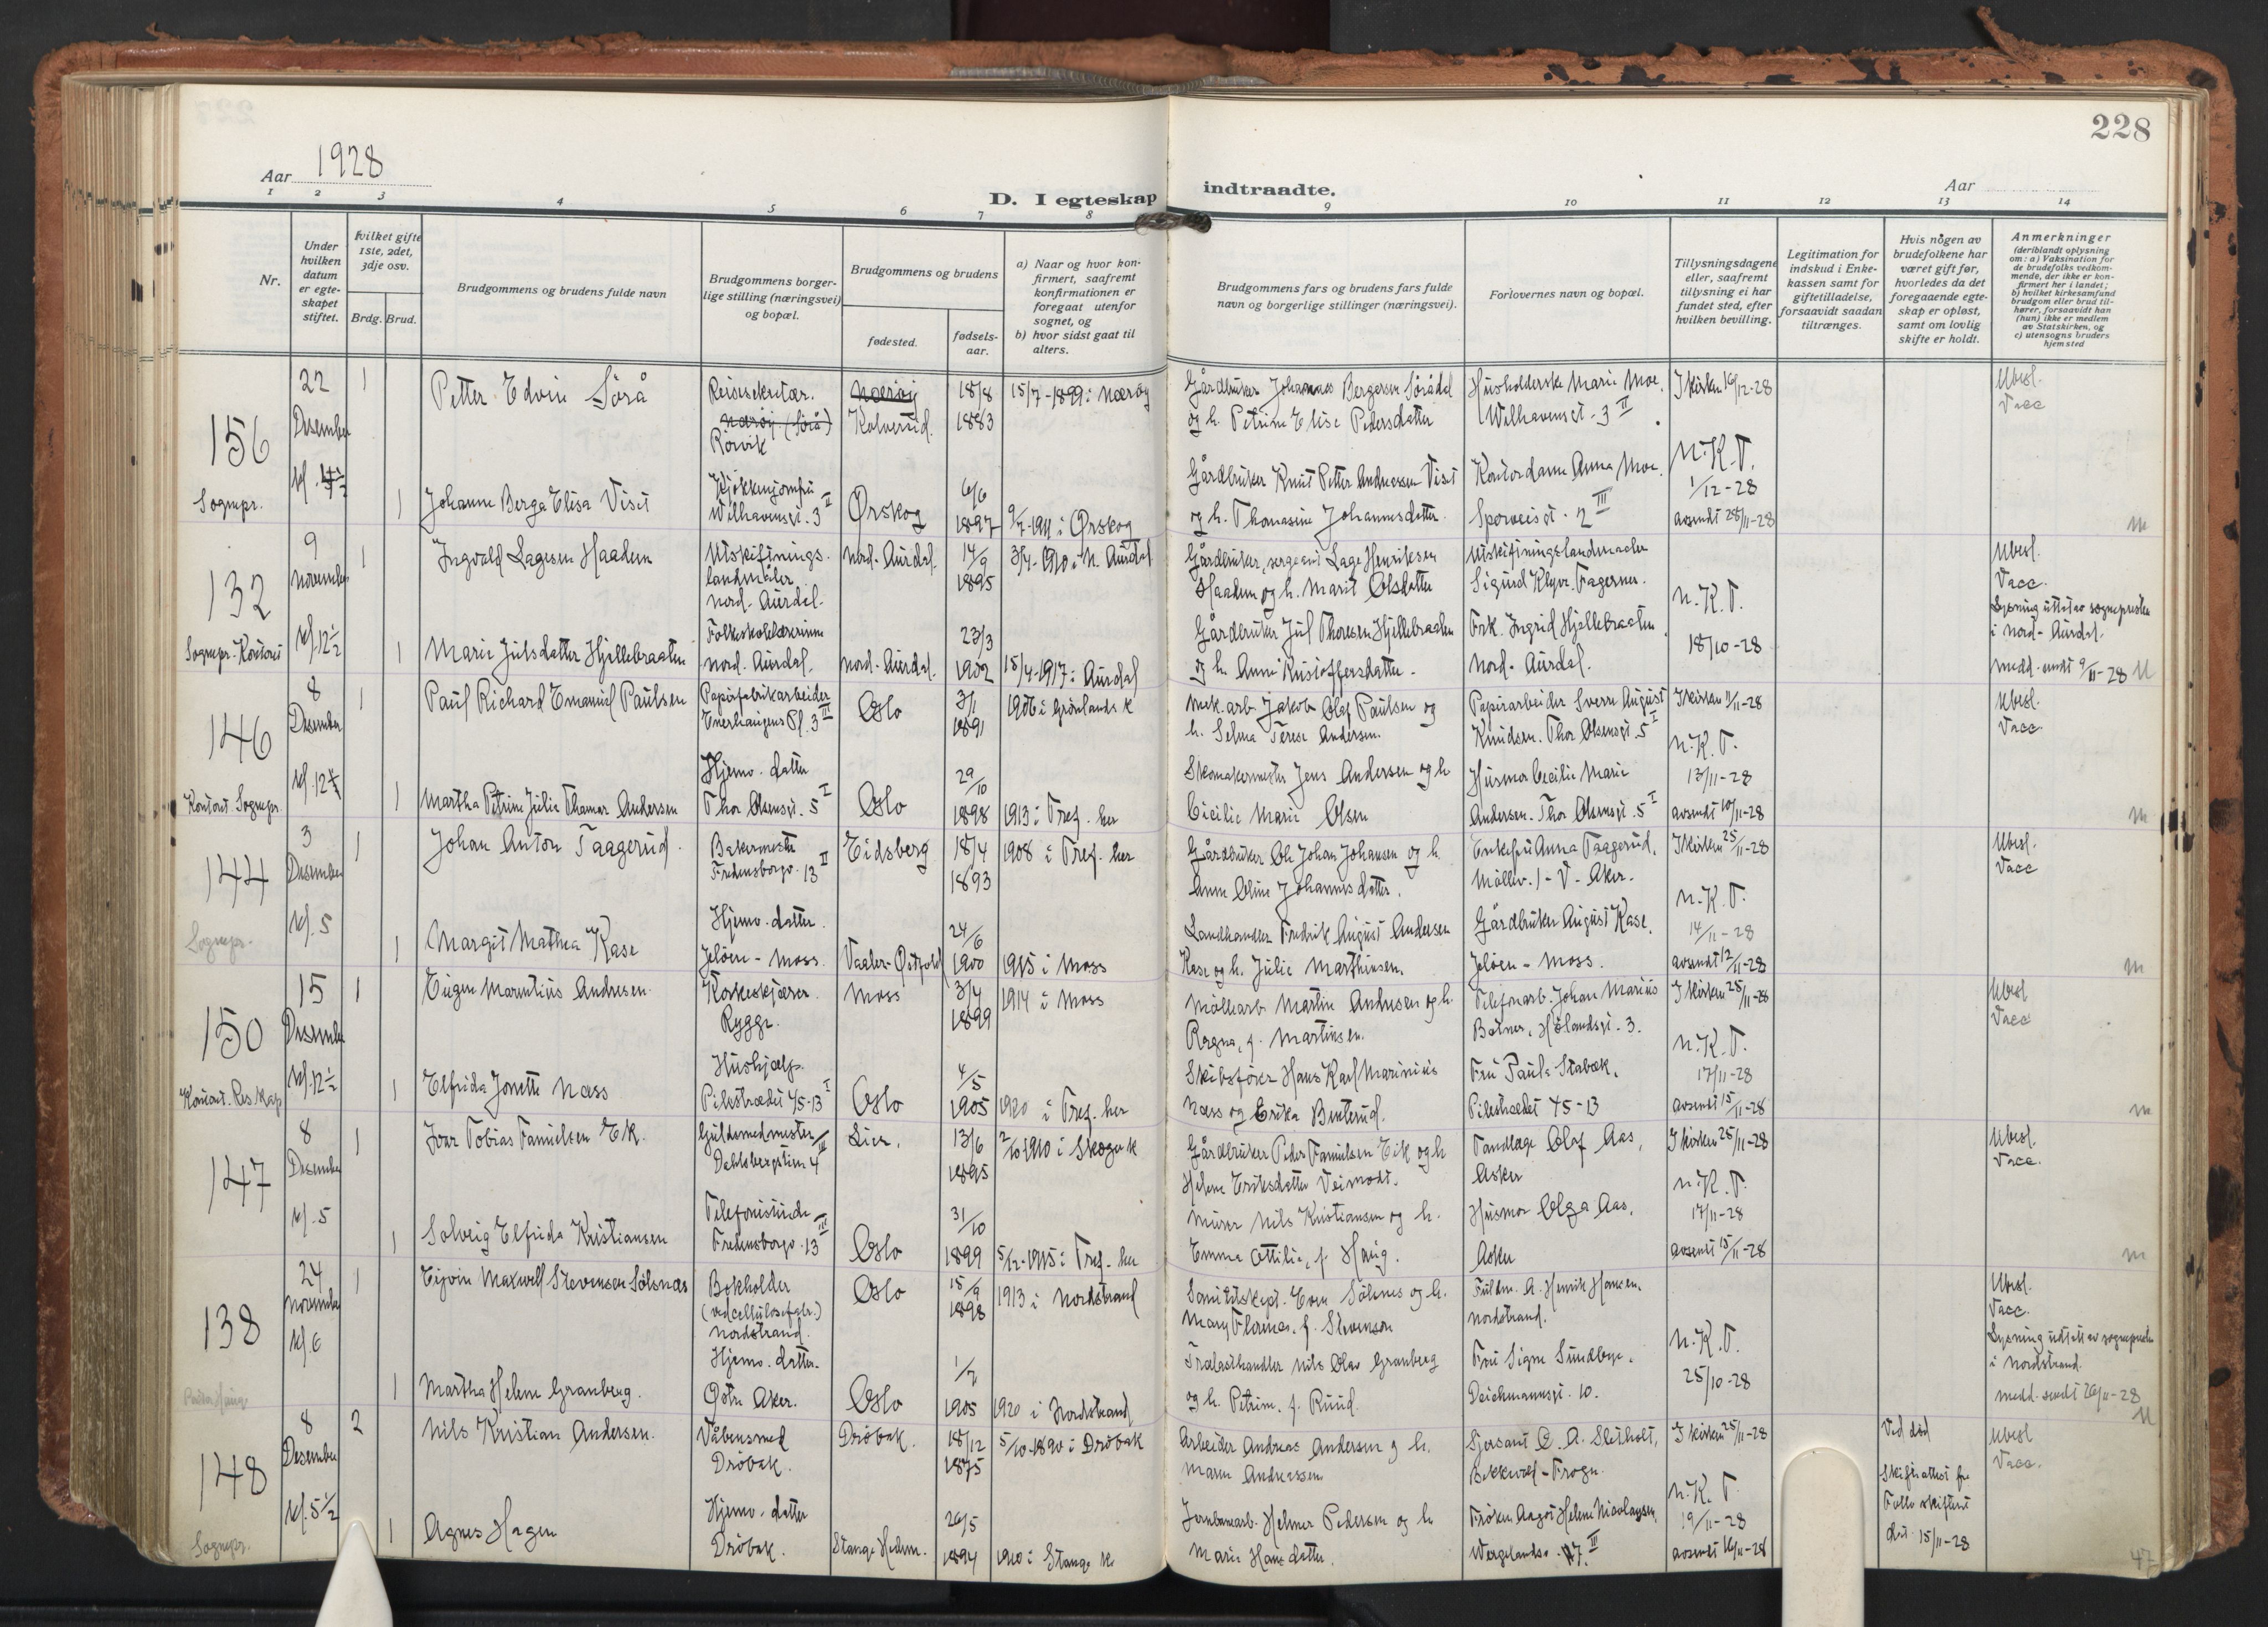 228
Aar 1928
D. I egteskap indtraadte.
Aar
1 2 3 4 5 6 7 8 9 10 11 12 13 14
Nr.
Under hvilken datum er egteskapet stiftet.
hvilket gifte 1ste, 2det, 3dje osv.
Brdg. Brud.
Brudgommens og brudens fulde navn
Brudgommens borgerlige stilling (næringsvei) og bopæl.
Brudgommens og brudens
fødested.
fødselsaar.
a) Naar og hvor konfirmert, saafremt konfirmationen er foregaat utenfor sognet, og
b) hvor sidst gaat til alters.
Brudgommens fars og brudens fars fulde navn og borgerlige stillinger (næringsvei).
Forlovernes navn og bopæl.
Tillysningsdagene eller, saafremt tillysning ei har fundet sted, efter hvilken bevilling.
Legitimation for indskud i Enkekassen samt for giftetilladelse, forsaavidt saadan tiltrænges.
Hvis nogen av brudefolkene har været gift før, hvorledes da det foregaaende egteskap er opløst, samt om lovlig skifte er holdt.
Anmerkninger
(deriblandt oplysning om: a) Vaksination for de brudefolks vedkommende, der ikke er konfirmert her i landet; b) hvilket kirkesamfund brudgom eller brud tilhører, forsaavidt han (hun) ikke er medlem av Statskirken, og c) utensogns bruders hjemsted
156
Sognepr.
22 Desember
1 Petter Edvin Sörå
Reisesekretær.
nærøy (Sörå)
Rörvik
nærøy
Kolvereid.
18/8 1883
15/7-1899 i Nærøy
Gårdbruker Johannes Bergersen Sörådal
og h. Petrine Elise Pedersdatter
Husholderske Marie Moe,
Welhavensgt. 3 II
I kirken 16/12-28
Ubesl.
Vacc
1 Johanne Berga Elisa Visit
Kjökkenjomfru
Welhavensgt. 3 II
Ørskog
6/6 1897
9/7-1911 i Ørskog
Gårdbruker Knut Petter Andreassen Visit
og h. Thomasine Johannesdatter.
Kontordame Anna Moe.
Sporveisgt. 2 III
N.K.T.
1/12-28
avsendt 28/11-28
132
Sognepr. Kontort
9 November
kl. 12 1/2
1 Ingvald Lagesen Haadem
Utskiftningslandmåler.
Nord-Aurdal.
Nord-Aurdal.
14/9 1895
3/4-1910 i N. Aurdal
Gårdbruker, sergeant Lage Henriksen
Haadem og h. Marit Olsdatter
Utskiftningslandmaaler
Sigurd Klyve. Fagernes.
N.K.T.
18/10-28
Ubesl.
Vacc.
Lysning uttat av sognepresten
i Nord-Aurdal.
medd. sendt 9/11-28
1 Marie Julsdatter Hjellebraaten
Folkeskolelærerinne
Nord. Aurdal.
Nord-Aurdal.
23/3 1902
15/4-1917 i Aurdal
Gårdbruker Jul Thoresen Hjellebraaten
og h. Anne Kristoffersdatter.
Frk. Ingrid Hjellebraaten
Nord-Aurdal.
146
Kontort Sognepr.
8 Desember
1 Paul Richard Emanuel Paulsen
Papirfabrikarbeider
Enerhaugens Pl. 3 III
Oslo
3/1 1891
1906 i Grönlands k
Mek.arb. Jakob Olaf Paulsen og
h. Selma Terese Andersen.
Papirarbeider Sverre August
Knudsen. Thor Olsensgt. 5 I
I kirken 11/11-28
N.K.T.
13/11-28
avsendt 10/11-28
Ubesl.
Vacc.
1 Martha Petrine Julie Thamar Andersen
Hjemv. datter
Thor Olsensgt. 5 I
Oslo
29/10 1898
1913 i Tref. her
Skomakermester Jens Andersen og h
Cicilie Marie Olsen
Husmor Cecilie Marie
Andersen. Thor Olsensgt. 5 I
144
Sognepr.
3 Desember
kl. 5
1 Johan Anton Taagerud.
Bakermester
Fredensborgv. 13 II
Eidsberg
18/4 1893
1908 i Tref. her
Gårdbruker Ole Johan Johansen og h.
Anne Oline Johannesdatter.
Enkefru Anna Taagerud,
Möllev. 1 - V. Aker.
I kirken 25/11-28
N.K.T.
14/11-28
avsendt 12/11-28
Ubesl.
Vacc
1 Margit Mathea Kase
Hjemv. datter.
Jelöen - Moss.
Vaaler-Østfold
24/6 1900
1915 i Moss
Landhandler Fredrik August Andersen
Kase og h. Julie Marthinsen.
Gårdbruker August Kase,
Jelöen - Moss.
150
Kontort. Res. Kap
15 Desember
kl. 12 1/2
1 Eugen Marentius Andresen.
Rygge.
Moss
3/4 1899
1914 i Moss
Möllearb. Martin Andresen og h.
Ragna, f. Martinsen.
Telefonarb. Johan Marius
Botner, Hölandsgt. 3.
I kirken 25/11-28
N.K.T.
17/11-28
avsendt 15/11-28
Ubesl
Vacc
1 Elfrida Jonette Næss
Hushjelp.
Pilestrædet 45-13 I
Oslo
4/5 1905
1920 i Tref. her
Skibsförer Hans Karl Marinius
Næss og Erika Benterud.
Fru Paula Stabæk,
Pilestrædet 45-13
147
8 Desember
kl. 5
1 Ivar Tobias Fanuelsen Ek.
Guldsmedmester
Dahlsbergstien 4 III
Lier.
13/6 1895
2/10 1910 i Skoger k
Gårdbruker Peder Fanuelsen Eik og h
Helene Eriksdatter Veimodt.
Tandlæge Olaf Aas,
Asker
I kirken 25/11-28
N.K.T.
17/11-28
avsendt 15/11-28
Ubesl.
Vacc.
1 Solveig Elfrida Kristiansen
Telefonistinde
Fredensborgv. 13 III
Oslo
31/10 1899
5/12-1915 i Tref. her
Murer Nils Kristiansen og h.
Emma Ottilie, f. Haug.
Husmor Olga Aas,
Asker
138
24 November
kl. 6
1 Eyvin Maxwell Stevensen Sölsnæs
Bokholder
(ved cellulosefabr.)
Nordstrand.
Oslo
15/9 1898
1913 i Nordstrand
Sanitetskapt. Even Sölsnes og h.
Mary Florence, f. Stevenson
Fuldm. A. Henrik Hansen.
Nordstrand.
N.K.T.
25/10-28
Ubesl.
Vacc.
Lysning udtatt av sognepresten
i Nordstrand.
medd. sendt 26/11-28
1 Martha Helene Granberg.
Hjemv. datter.
Østre Aker.
Oslo
1/2 1905
1920 i Nordstrand
Trælasthandler Nils Olav Granberg
og h. Petrine, f. Ruud.
Fru Signe Sundbye.
Deichmannsgt. 10.
148
Sognepr.
8 Desember
kl. 5 1/2
2 Nils Kristian Andersen.
Våbensmed
Dröbak.
Dröbak.
18/12 1875
5/10-1890 i Dröbak
Arbeider Andreas Andersen og h.
Maren Andreassen
Sjersant O. A. Sletholt,
Bekkevold - Frogn.
I kirken 25/11-28
N.K.T.
19/11-28
avsendt 16/11-28
Ved död
Skifteattest fra
Follo skifterett
dat. 15/11-28
Ubesl
Vacc.
1 Agnes Hagen
Hjemv. datter
Dröbak.
Stange Hedm.
26/5 1894
1910 i Stange k
Jernbanearb. Helmer Pedersen og h
Marie Hansdatter.
Fröken Aagot Helene Nicolaysen,
47